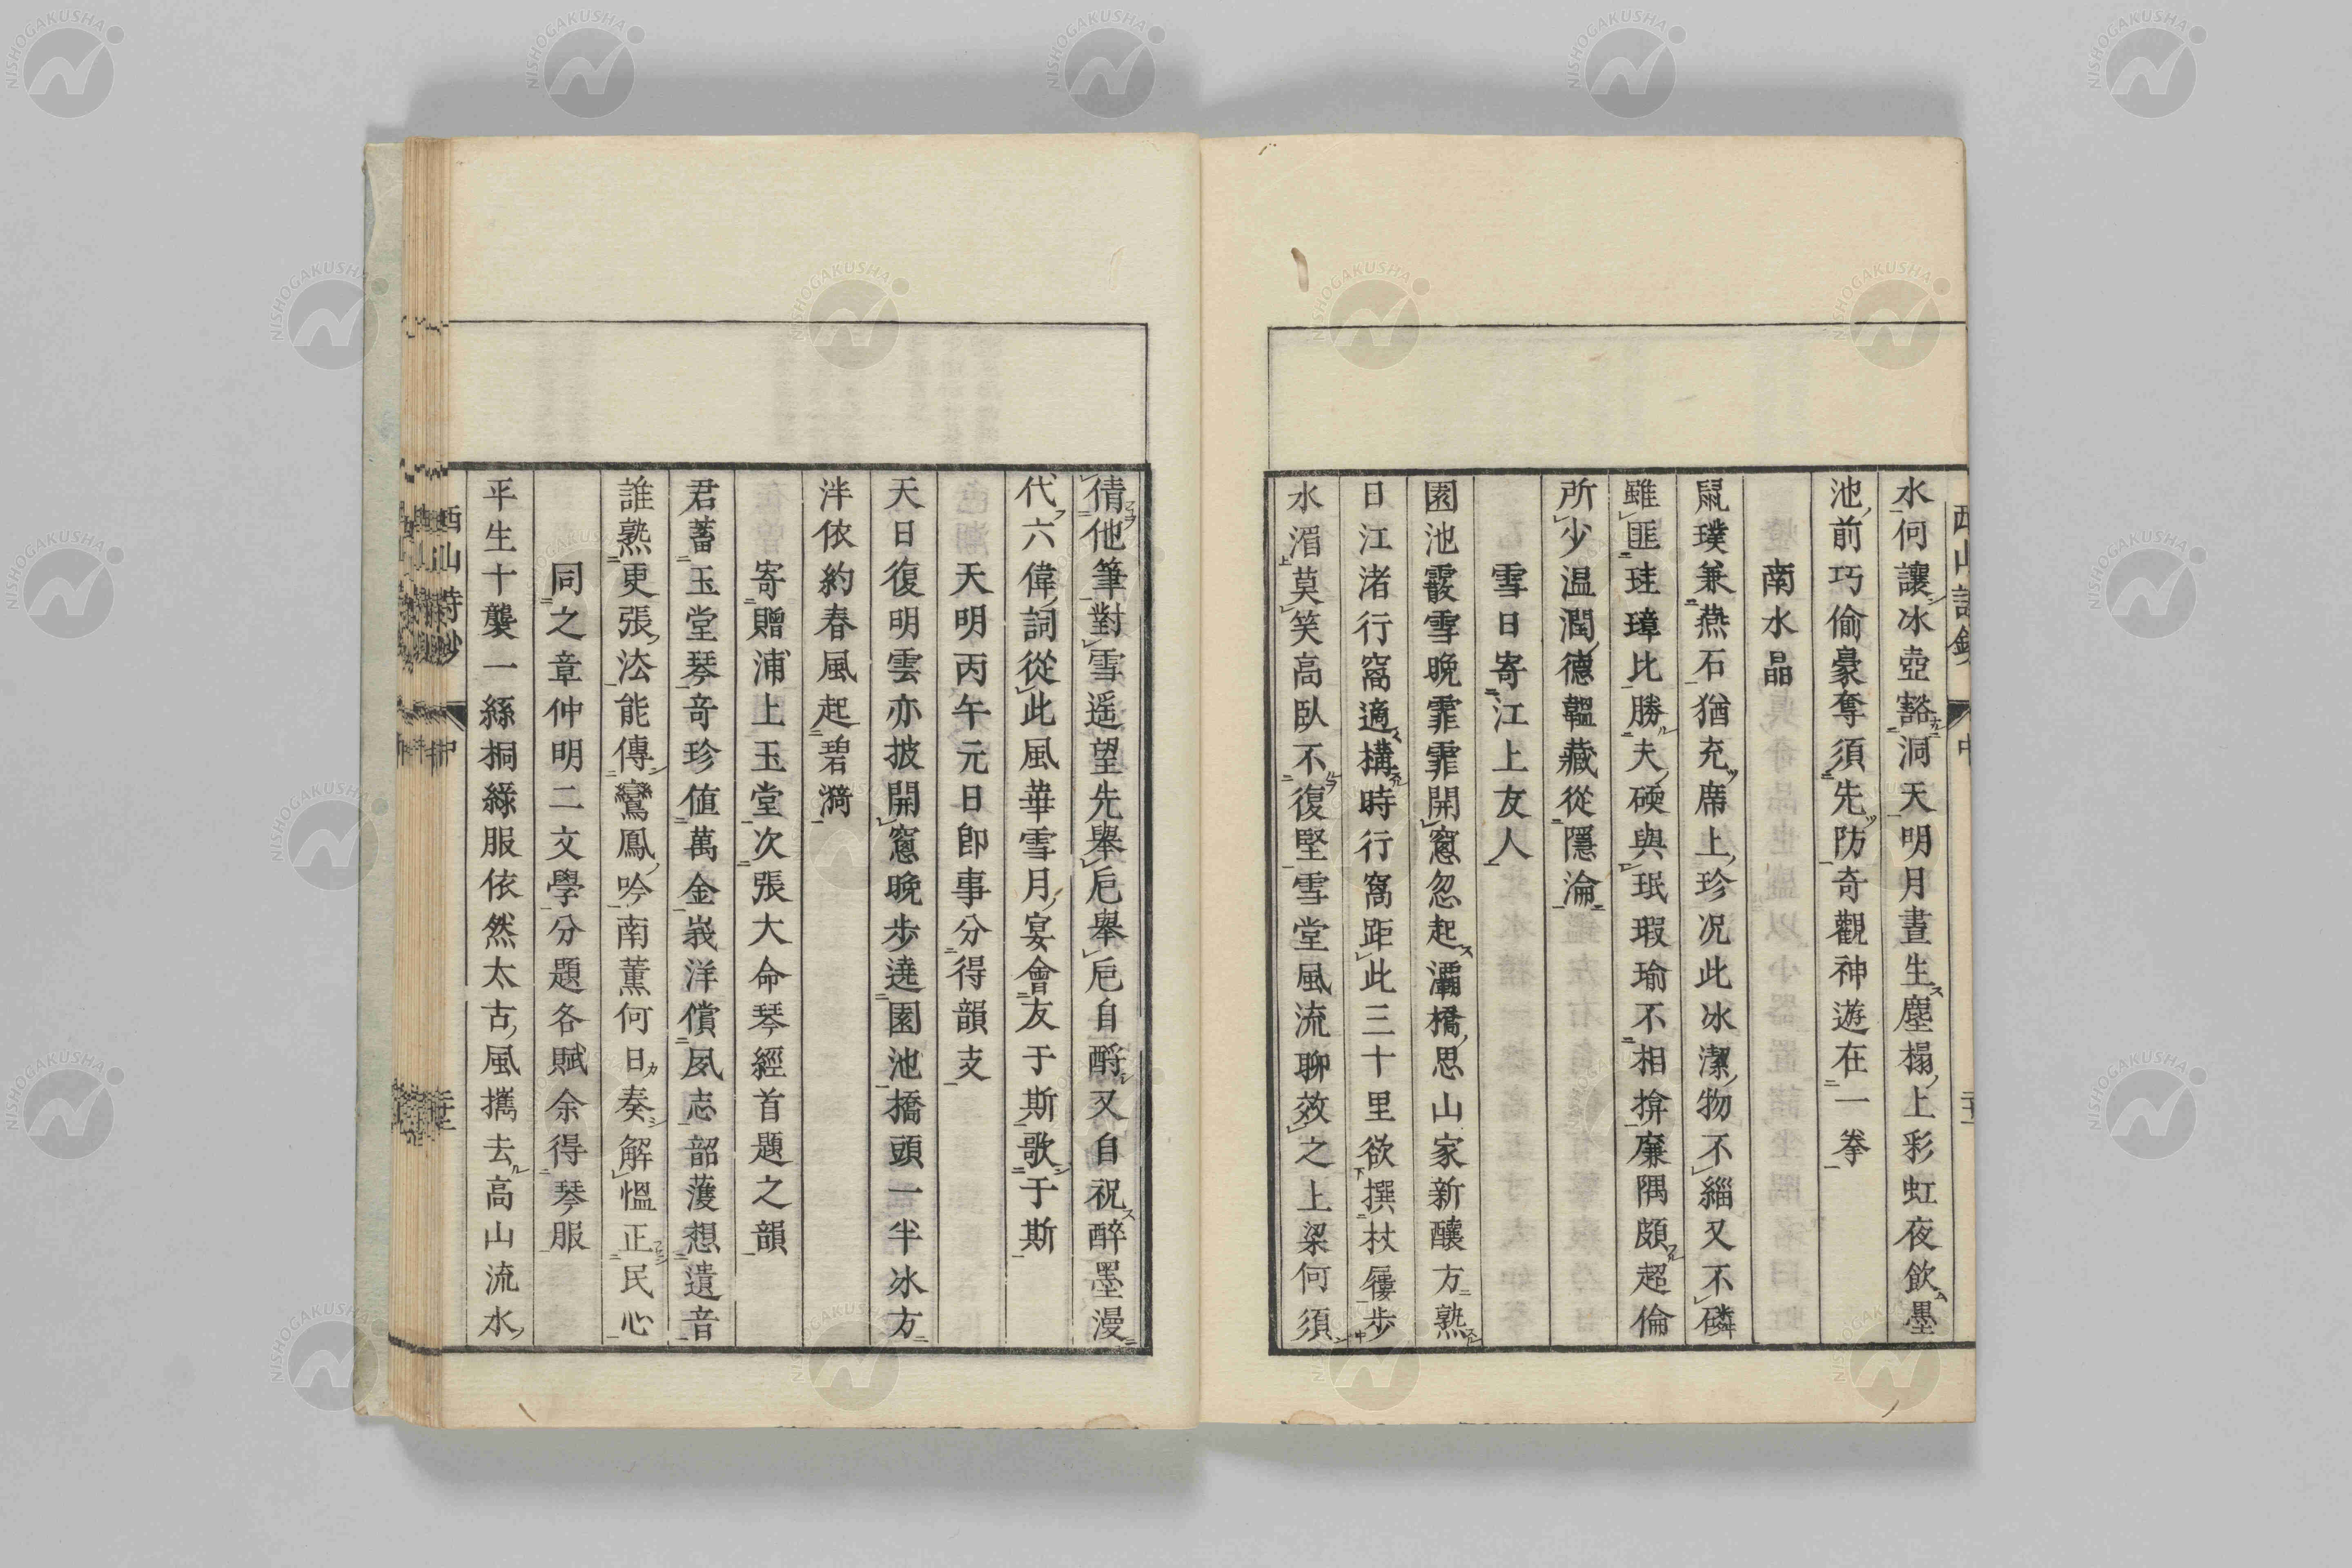 水何讓冰壺豁洞天明月晝生塵榻上彩虹夜飮墨
池前巧偷豪奪須先防奇觀神遊在一拳
南水晶
鼠璞兼燕石猶充席上珍况此冰潔物不緇又不磷
雖匪珪璋比勝夫碝與珉瑕瑜不相揜廉隅頗超倫
所少温潤德韞藏從隱淪
雪日寄江上友人
園池霰雪晚霏霏開窻忽起灞橋思山家新釀方熟
日江渚行窩適構時行窩距此三十里欲撰杖屨步
水湄莫笑高臥不復堅雪堂風流聊效之上梁何須
倩他筆對雪遥望先舉卮舉卮自酹又自祝醉墨漫
代六偉詞從此風華雪月宴會友于斯歌于斯
天明丙午元日卽事分得韻支
天日復明雲亦披開窻晚步遶園池橋頭一半冰方
泮依約春風起碧漪
寄贈浦上玉堂次張大命琴經首題之韻
君蓄玉堂琴奇珍値萬金峩洋償夙志韶頀想遺音
誰熟更張法能傳鸞鳳吟南薰何日奏解慍正民心
同之章仲明二文學分題各賦余得琴服
平生十襲一絲桐綠服依然太古風攜去高山流水
西山詩鈔
中
西山詩鈔
中
NISHOGAKUSHA